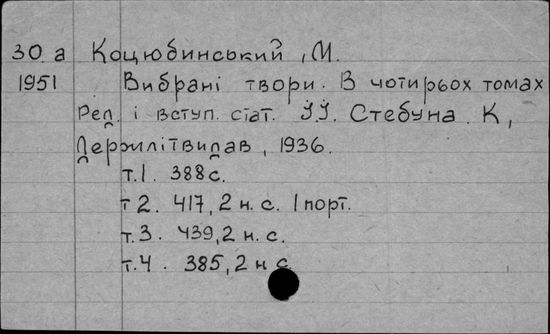 30 а Коцюбинський, М.
1951 Вибрані твори. В чотирьох томах
Ред. і вступ. стат. І.І. Стебуна. К,
Держлітвидав, 1936.
т.1. 388 с.
т 2. 417, 2 н. с. 1 порт.
т.3. 439, 2 н. с.
т.4. 385, 2 н с